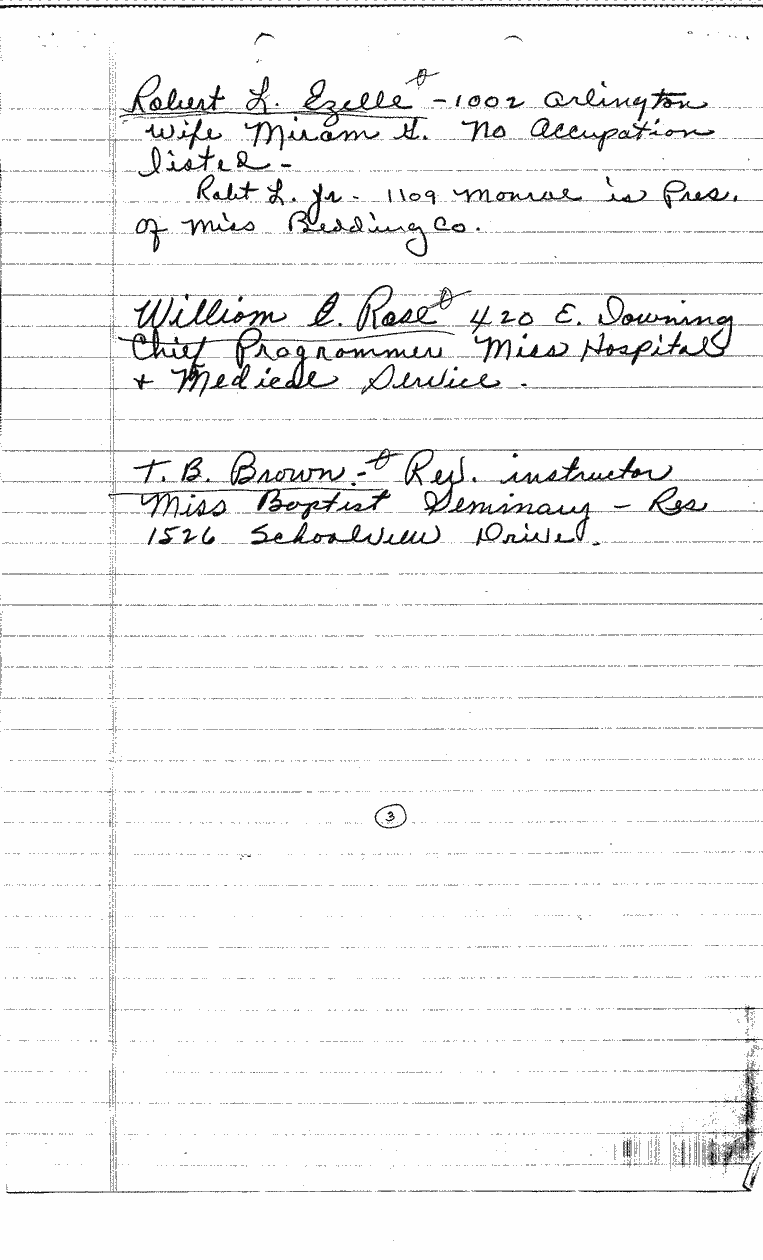 Robert L. Ezelle - 1002 Arlington
wife Miriam G. No Occupation
listed -
Robt L. Jr. - 1109 Monroe is Pres.
of Miss Bedding Co.
William C. Rose 420 E. Downing
Chief Programmer Miss Hospital
+ Medical Service.
T. B. Brown - Rev. instructor
Miss Baptist Seminary - Res
1526 Schoolview Drive.
3